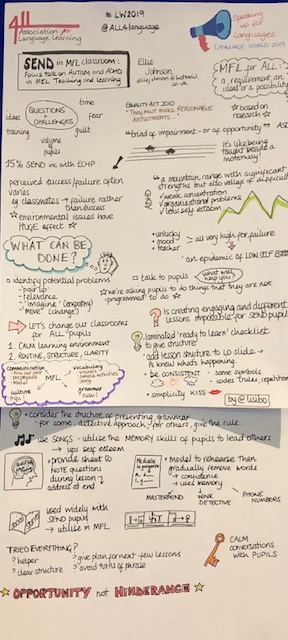 4ll
Association for
Language Learning
# LW2019
@ALL4language
Speaking
up for
Languages
LANGUAGE WORLD 2019
SEND in MFL classroom:
Focus talk on AUTISM and ADHD
in MFL Teaching and Learning
Ellie
Johnson
MFL for ALL:
a requirement, an
ideal or a possibility?
QUESTIONS
CHALLENGES
time
fear
ideas
training
volume of
pupils
guilt
EQUALITY ACT 2010
"They must make REASONABLE
ADJUSTMENTS..."
based on
research
"triad of impairment - or of opportunity"
It's like being
taught beside a
motorway!
15% SEND inc with ECHP
perceived success/failure often
varies
eg classmates → failure rather
than success
environmental issues have
HUGE effect
ADHD
"a mountain, range with significant
strengths but also valleys of difficulty"
weak concentration
organisational problems
low self esteem
unlucky
mood
teacher
all very high for failure
an epidemic of LOW SELF ESTEEM
WHAT CAN BE
DONE?
identify potential problems
pair up
relevance
imagine (empathy)
move (change)
talk to pupils
what will
help you?
we're asking pupils to do things that they are not
programmed to do
LET'S change our classrooms
for ALL pupils
1. CALM learning environment
2. ROUTINE, STRUCTURE, CLARITY
Is creating engaging and different
lessons impossible for SEND pupils
laminated 'ready to learn' checklist
to give structure
add lesson structure to pp slide →
know what's happening
be CONSISTENT - some symbols
- codes, rules, repetition
simplicity KISS
communication
MFL
vocabulary
culture
grammar
rules!
by @lisibo
consider the structure of presenting grammar
- for some, detective approach; for others, give the rule.
use SONGS - utilise the MEMORY skills of pupils to lead others
→ ups self esteem
provide sheet to
NOTE questions
during lesson &
address at end
model to rehearse Then
gradually remove words
→ confidence
→ uses memory
MASTERMIND
WINK
DETECTIVE
PHONE
NUMBERS
used widely with
SEND pupils
→ utilise in MFL
TRIED EVERYTHING?
? helper
? clear structure
? give plan for next few lessons
? avoid turns of phrase
CALM
conversations
with PUPILS
OPPORTUNITY not HINDERANCE